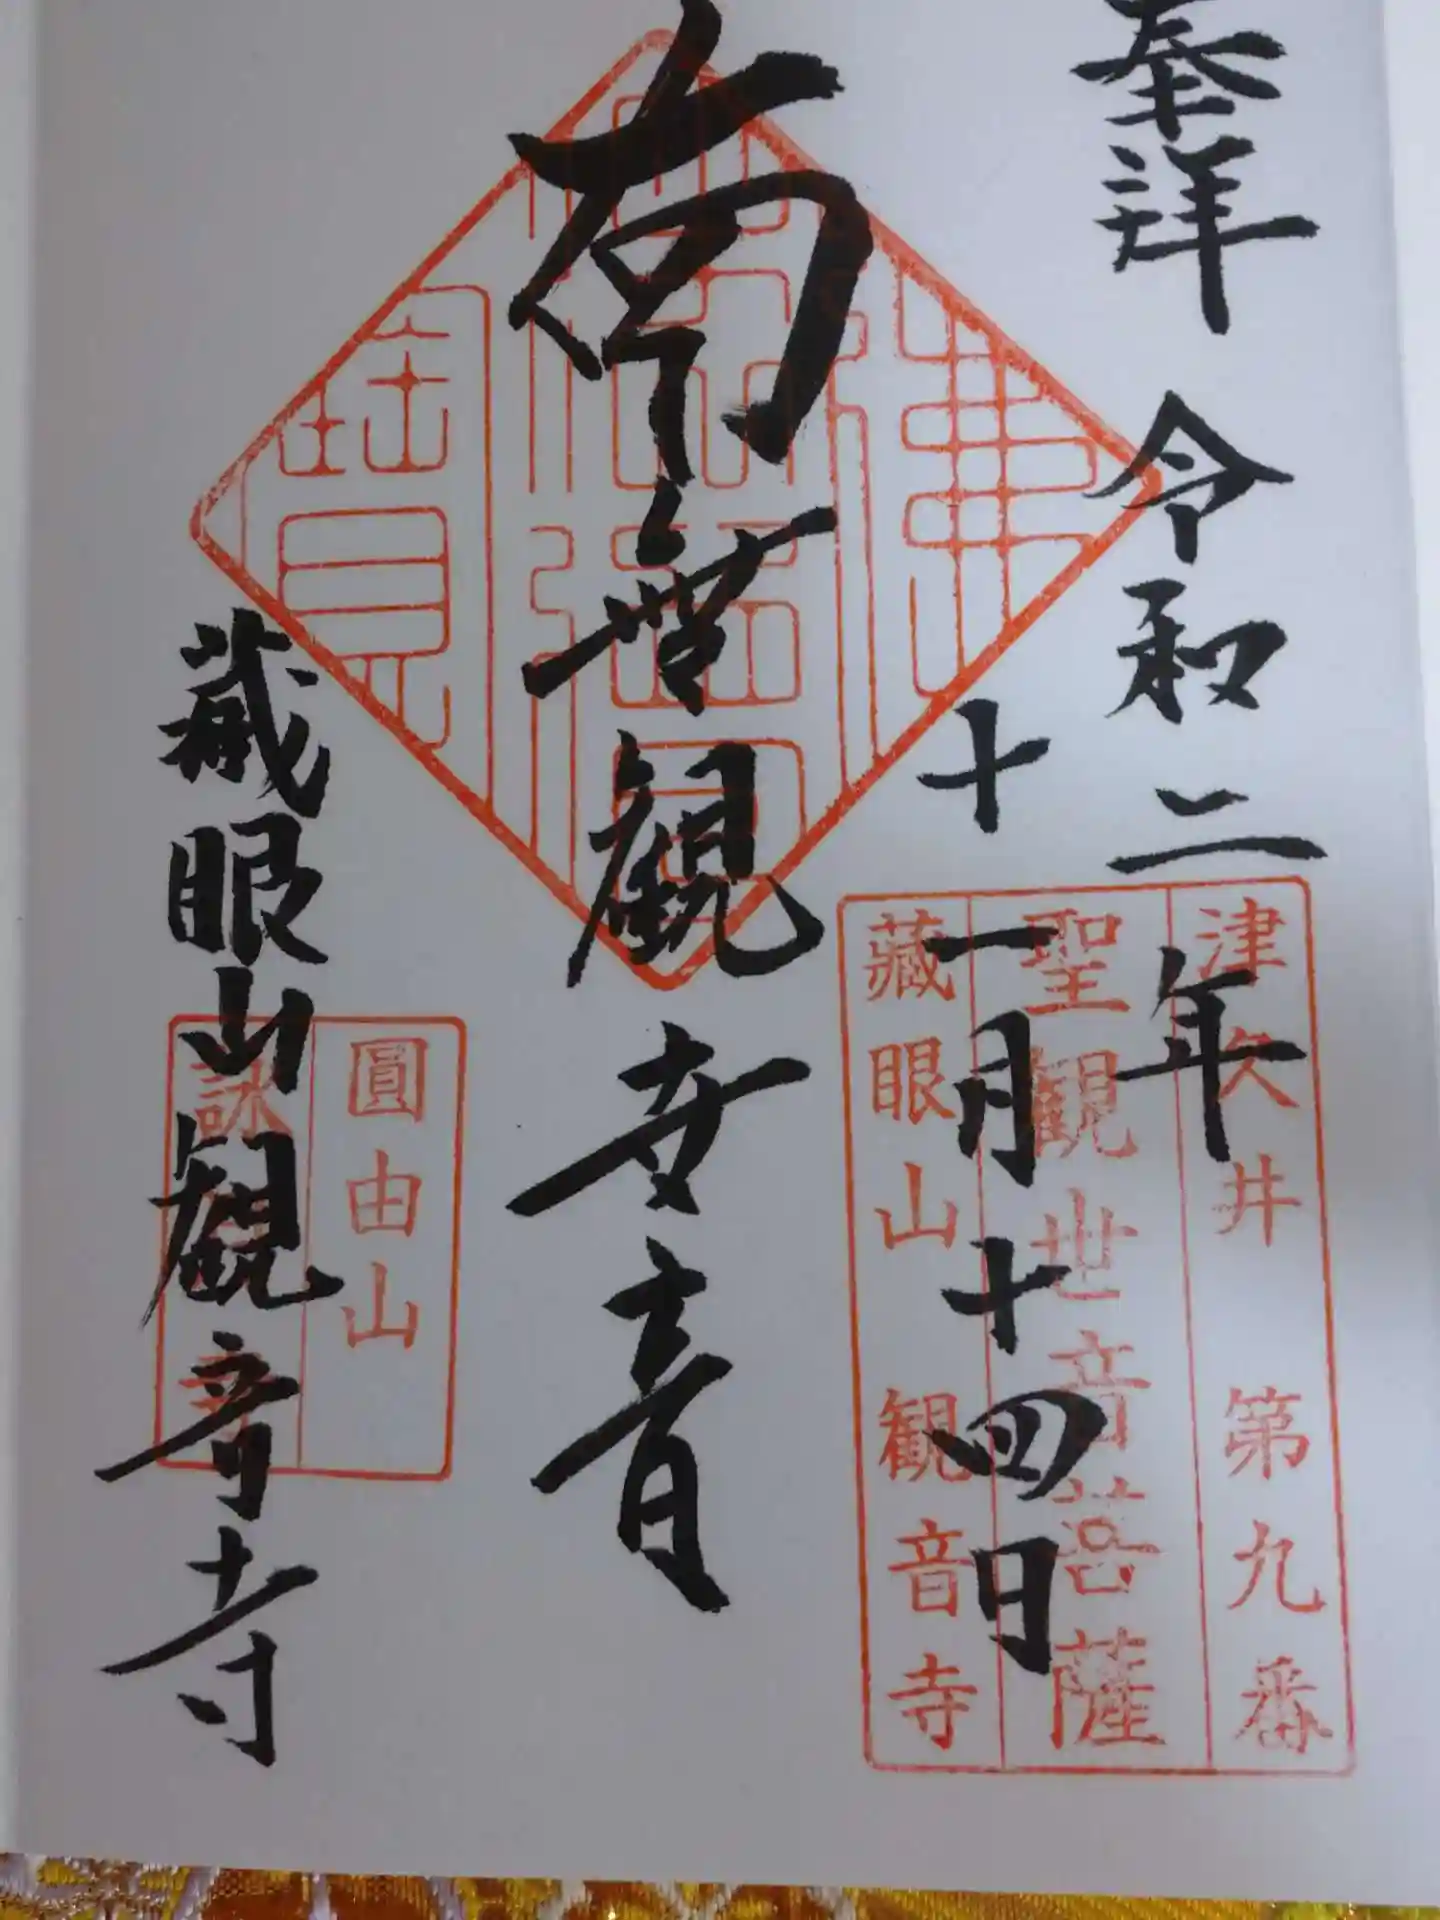 奉拝 令和二年
十一月十四日
津久井 第九番
聖観世音菩薩
蔵眼山 観音寺
南無観世音
佛法僧寶
圓由山
蔵眼山観音寺